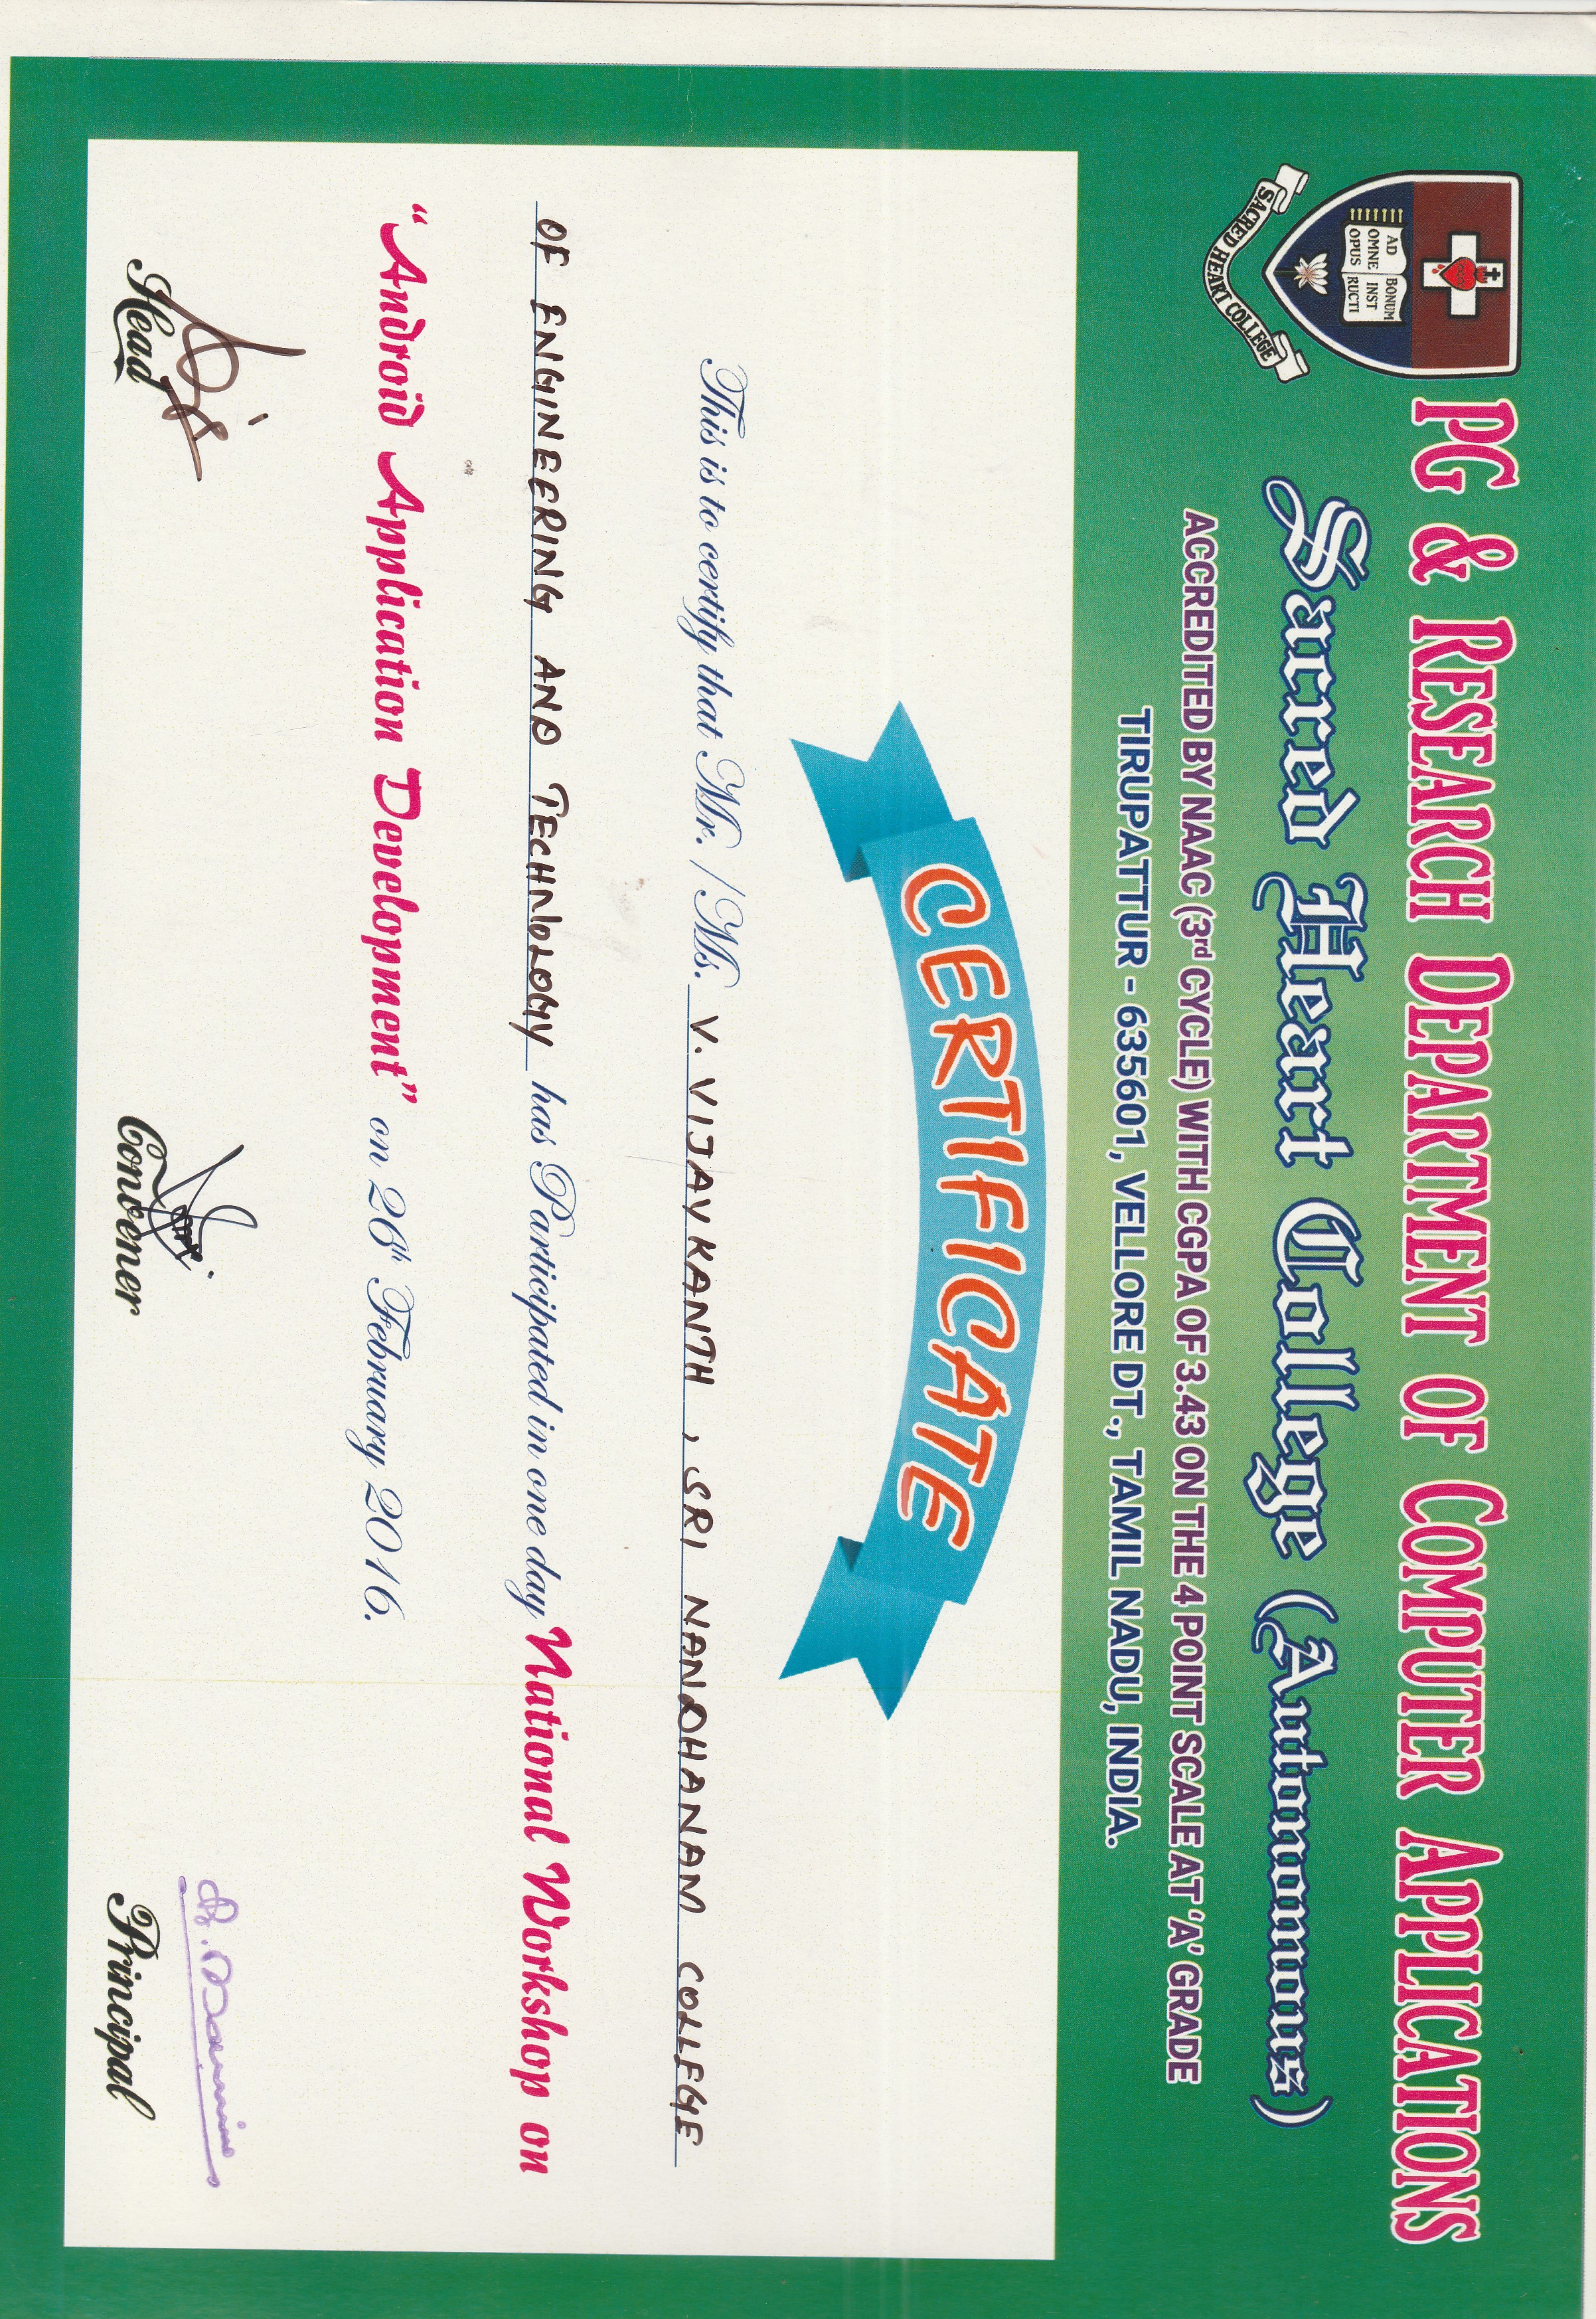 PG & RESEARCH DEPARTMENT OF COMPUTER APPLICATIONS
AD BONUM
OMNE INST
OPUS RUCTI
SACRED HEART COLLEGE
Sacred Heart College (Autonomous)
ACCREDITED BY NAAC (3rd CYCLE) WITH CGPA OF 3.43 ON THE 4 POINT SCALE AT ‘A’ GRADE
TIRUPATTUR - 635601, VELLORE DT., TAMIL NADU, INDIA.
CERTIFICATE
This is to certify that Mr. / Ms. V. VIJAYKANTH , SRI NANDHANAM COLLEGE
OF ENGINEERING AND TECHNOLOGY has Participated in one day National Workshop on
“Android Application Development” on 26th February 2016.
Head Convener Principal